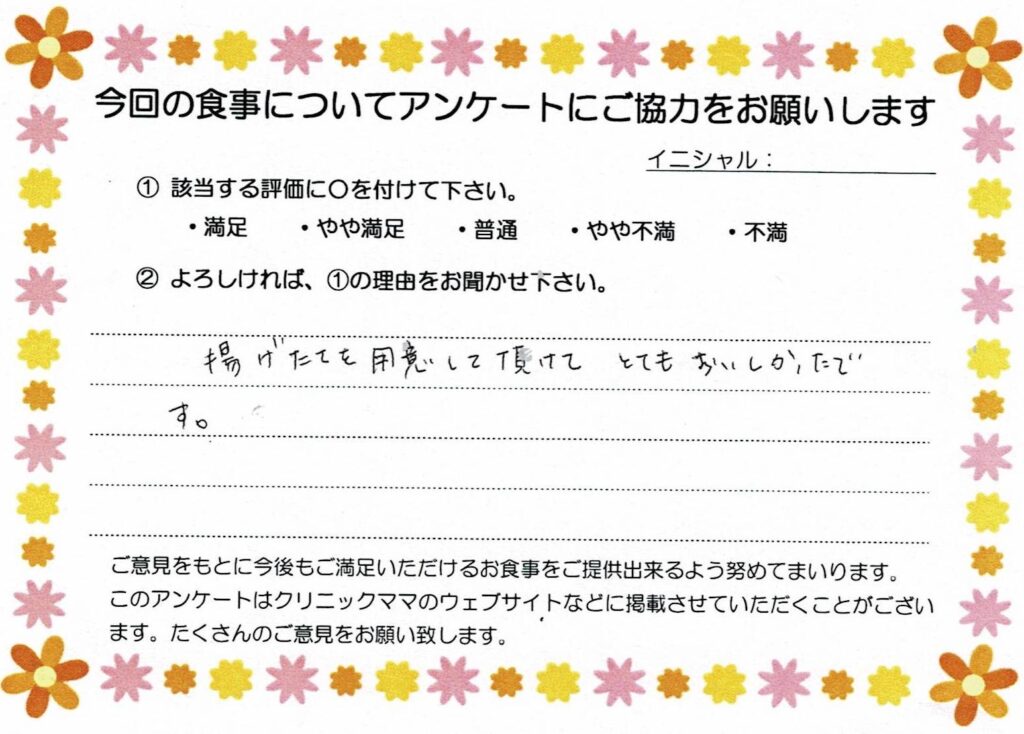 今回の食事についてアンケートにご協力をお願いします
イニシャル：
① 該当する評価に〇を付けて下さい。
・満足 ・やや満足 ・普通 ・やや不満 ・不満
② よろしければ、①の理由をお聞かせ下さい。
揚げたてを用意して頂けて とてもおいしかったで
す。
ご意見をもとに今後もご満足いただけるお食事をご提供出来るよう努めてまいります。
このアンケートはクリニックママのウェブサイトなどに掲載させていただくことがござい
ます。たくさんのご意見をお願い致します。